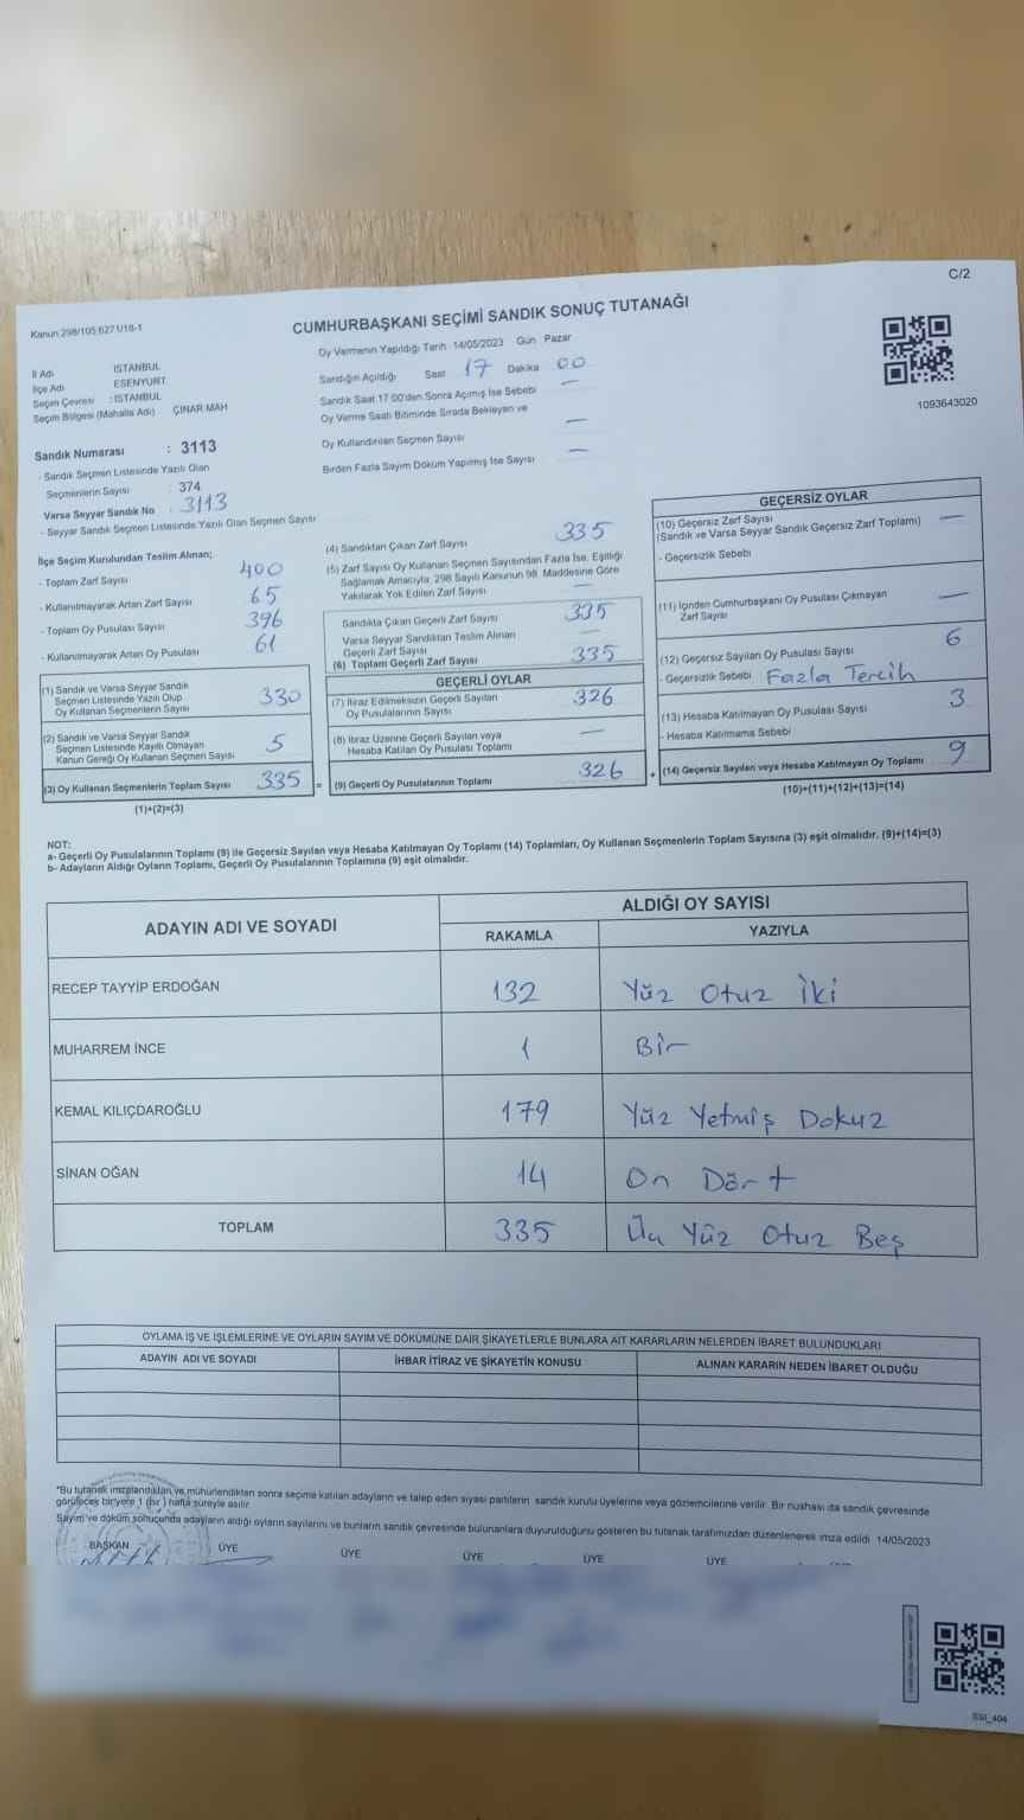 C/2
Kanun 298/105 627 U18-1
CUMHURBAŞKANI SEÇİMİ SANDIK SONUÇ TUTANAĞI
Oy Vermenin Yapıldığı Tarih 14/05/2023 Gün Pazar
İl Adı İSTANBUL
İlçe Adı ESENYURT
Seçim Çevresi : İSTANBUL
Seçim Bölgesi (Mahalle Adı) ÇINAR MAH
Sandığın Açıldığı Saat 17 Dakika 00
Sandık Saat 17 00'den Sonra Açımış İse Sebebi —
Oy Verme Saati Bitiminde Sırada Bekleyen ve
Oy Kullandırılan Seçmen Sayısı —
Birden Fazla Sayım Döküm Yapılmış İse Sayısı —
1093643020
Sandık Numarası : 3113
- Sandık Seçmen Listesinde Yazılı Olan
Seçmenlerin Sayısı : 374
Varsa Seyyar Sandık No : 3113
- Seyyar Sandık Seçmen Listesinde Yazılı Olan Seçmen Sayısı
İlçe Seçim Kurulundan Teslim Alınan;
- Toplam Zarf Sayısı 400
- Kullanılmayarak Artan Zarf Sayısı 65
- Toplam Oy Pusulası Sayısı 396
- Kullanılmayarak Artan Oy Pusulası 61
(1) Sandık ve Varsa Seyyar Sandık
Seçmen Listesinde Yazılı Olup
Oy Kullanan Seçmenlerin Sayısı 330
(2) Sandık ve Varsa Seyyar Sandık
Seçmen Listesinde Kayıtlı Olmayan
Kanun Gereği Oy Kullanan Seçmen Sayısı 5
(3) Oy Kullanan Seçmenlerin Toplam Sayısı 335 =
(1)+(2)=(3)
(4) Sandıktan Çıkan Zarf Sayısı 335
(5) Zarf Sayısı Oy Kullanan Seçmen Sayısından Fazla İse, Eşitliği
Sağlamak Amacıyla, 298 Sayılı Kanunun 98. Maddesine Göre
Yakılarak Yok Edilen Zarf Sayısı —
Sandıkta Çıkan Geçerli Zarf Sayısı 335
Varsa Seyyar Sandıktan Teslim Alınan
Geçerli Zarf Sayısı —
(6) Toplam Geçerli Zarf Sayısı 335
GEÇERLİ OYLAR
(7) İtiraz Edilmeksizin Geçerli Sayılan
Oy Pusulalarının Sayısı 326
(8) İtiraz Üzerine Geçerli Sayılan veya
Hesaba Katılan Oy Pusulası Toplamı —
(9) Geçerli Oy Pusulalarının Toplamı 326 +
GEÇERSİZ OYLAR
(10) Geçersiz Zarf Sayısı —
(Sandık ve Varsa Seyyar Sandık Geçersiz Zarf Toplamı)
- Geçersizlik Sebebi
(11) İçinden Cumhurbaşkanı Oy Pusulası Çıkmayan
Zarf Sayısı —
(12) Geçersiz Sayılan Oy Pusulası Sayısı 6
- Geçersizlik Sebebi Fazla Tercih
(13) Hesaba Katılmayan Oy Pusulası Sayısı 3
- Hesaba Katılmama Sebebi
(14) Geçersiz Sayılan veya Hesaba Katılmayan Oy Toplamı 9
(10)+(11)+(12)+(13)=(14)
NOT:
a- Geçerli Oy Pusulalarının Toplamı (9) ile Geçersiz Sayılan veya Hesaba Katılmayan Oy Toplamı (14) Toplamları, Oy Kullanan Seçmenlerin Toplam Sayısına (3) eşit olmalıdır. (9)+(14)=(3)
b- Adayların Aldığı Oyların Toplamı, Geçerli Oy Pusulalarının Toplamına (9) eşit olmalıdır.
ADAYIN ADI VE SOYADI ALDIĞI OY SAYISI
RAKAMLA YAZIYLA
RECEP TAYYİP ERDOĞAN 132 Yüz Otuz İki
MUHARREM İNCE 1 Bir
KEMAL KILIÇDAROĞLU 179 Yüz Yetmiş Dokuz
SİNAN OĞAN 14 On Dört
TOPLAM 335 Üç Yüz Otuz Beş
OYLAMA İŞ VE İŞLEMLERİNE VE OYLARIN SAYIM VE DÖKÜMÜNE DAİR ŞİKAYETLERLE BUNLARA AİT KARARLARIN NELERDEN İBARET BULUNDUKLARI
ADAYIN ADI VE SOYADI İHBAR İTİRAZ VE ŞİKAYETİN KONUSU ALINAN KARARIN NEDEN İBARET OLDUĞU
*Bu tutanak imzalandıktan ve mühürlendikten sonra seçime katılan adayların ve talep eden siyasi partilerin sandık kurulu üyelerine veya gözlemcilerine verilir. Bir nüshası da sandık çevresinde
görülecek bir yere 1 (bir ) hafta süreyle asılır.
Sayım ve döküm sonucunda adayların aldığı oyların sayılarını ve bunların sandık çevresinde bulunanlara duyurulduğunu gösteren bu tutanak tarafımızdan düzenlenerek imza edildi 14/05/2023
BAŞKAN ÜYE ÜYE ÜYE ÜYE ÜYE